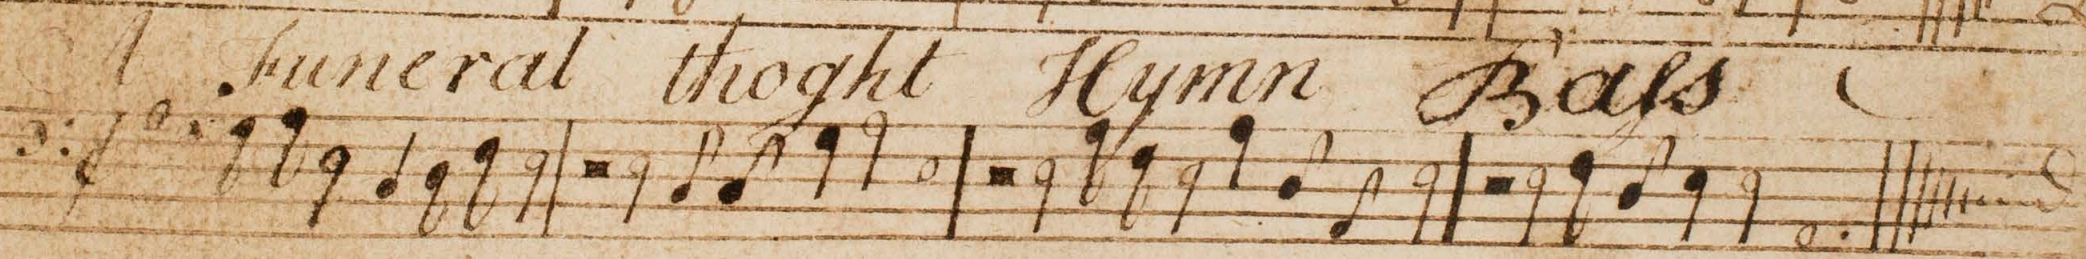 A Funeral thoght Hymn Baſs